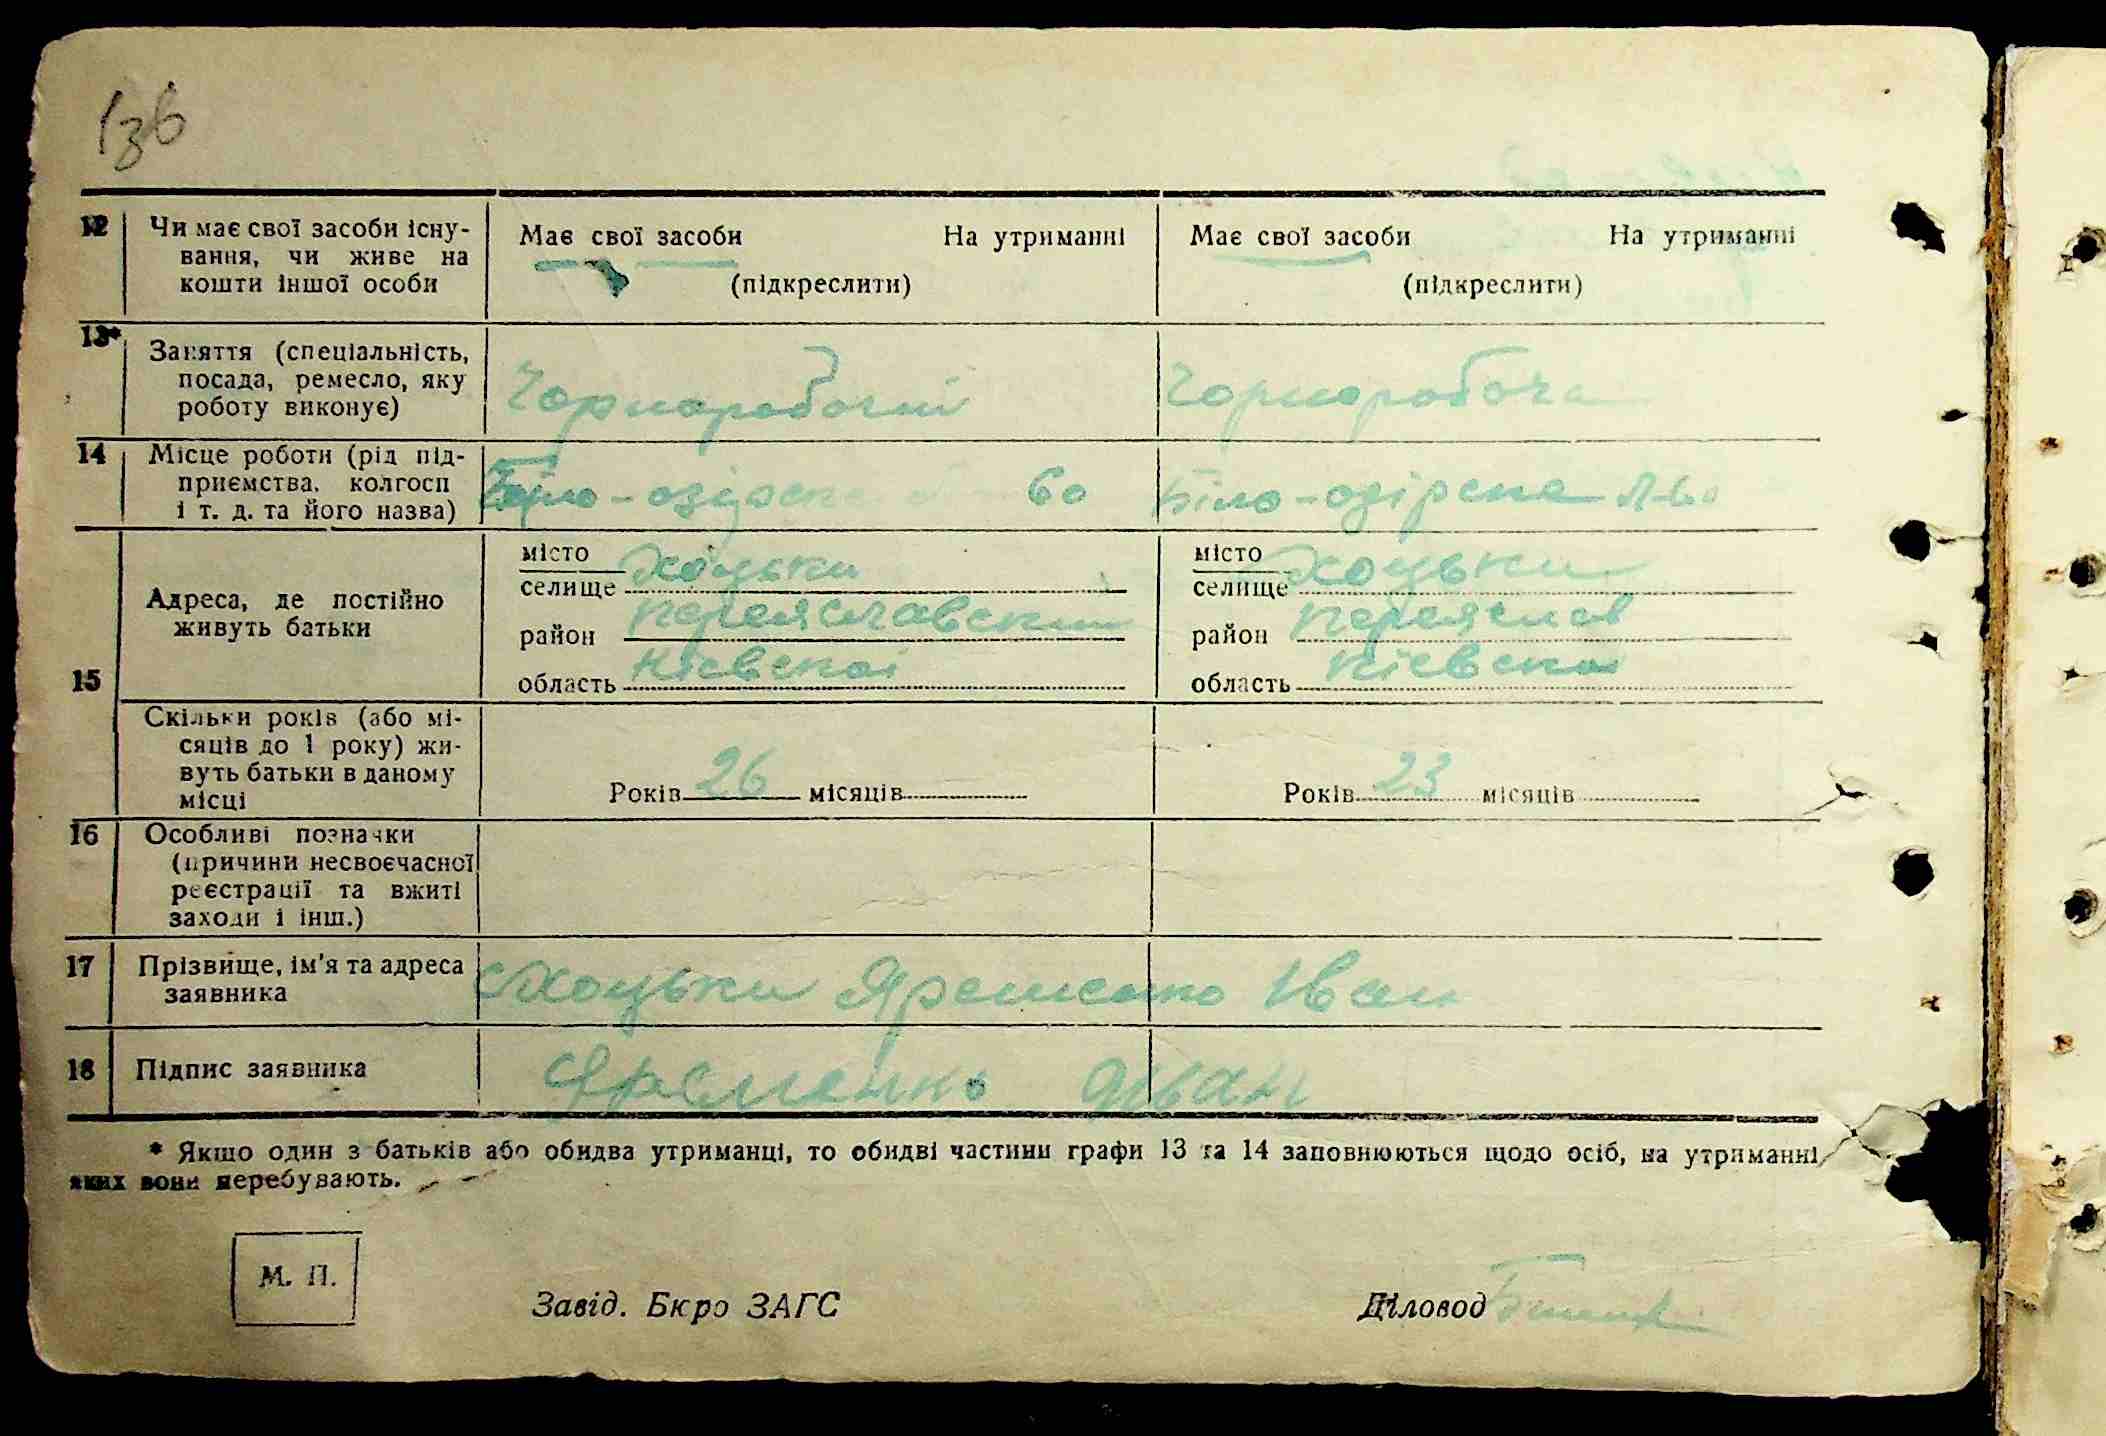 136
12 Чи має свої засоби існу-
вання, чи живе на
кошти іншої особи
Має свої засоби На утриманні
(підкреслити)
Має свої засоби На утриманні
(підкреслити)
13*
Заняття (спеціальність,
посада, ремесло, яку
роботу виконує)
Чорноробочий
Чорноробоча
14 Місце роботи (рід під-
приємства, колгосп
і т. д. та його назва)
Біло-озірске
Біло-озірске Л-во
15
Адреса, де постійно
живуть батьки
місто
селище Хоцьки
район Переяславский
область Кіевскоі
місто
селище Хоцьки
район Переяслав
область Кіевскоі
Скільки років (або мі-
сяців до 1 року) жи-
вуть батьки в даному
місці
Років 26 місяців
Років 23 місяців
16 Особливі позначки
(причини несвоєчасної
реєстрації та вжиті
заходи і інш.)
17 Прізвище, ім'я та адреса
заявника
с Хоцьки Яременко Іван
18 Підпис заявника
Яременко Іван
* Якшо один з батьків або обидва утриманці, то обидві частини графи 13 та 14 заповнюються щодо осіб, на утриманні
яких вони перебувають.
М. П.
Завід. Бюро ЗАГС
Діловод